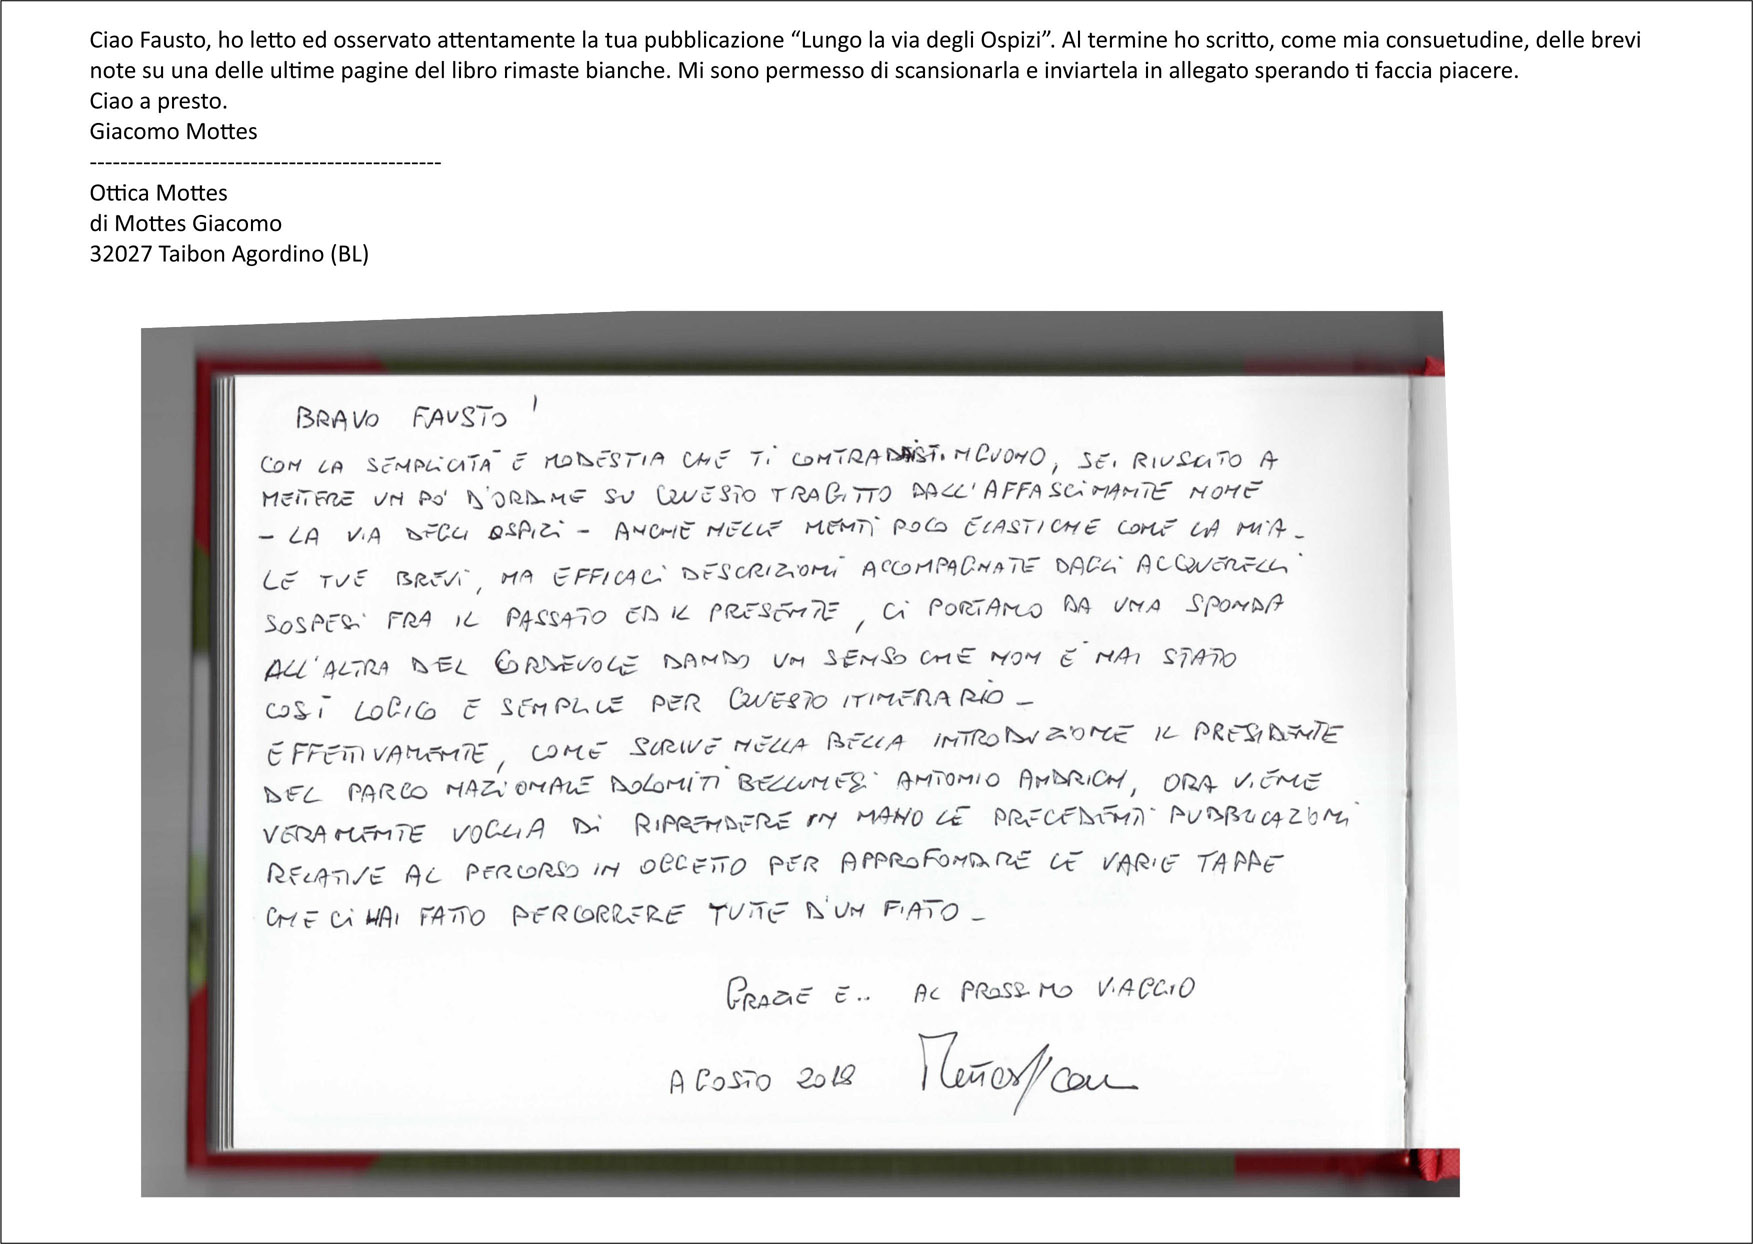 Ciao Fausto, ho letto ed osservato attentamente la tua pubblicazione “Lungo la via degli Ospizi”. Al termine ho scritto, come mia consuetudine, delle brevi
note su una delle ultime pagine del libro rimaste bianche. Mi sono permesso di scansionarla e inviartela in allegato sperando ti faccia piacere.
Ciao a presto.
Giacomo Mottes
----------------------------------------------
Ottica Mottes
di Mottes Giacomo
32027 Taibon Agordino (BL)
BRAVO FAUSTO !
CON LA SEMPLICITA' E MODESTIA CHE TI CONTRADDISTINGUONO, SEI RIUSCITO A
METTERE UN PO' D'ORDINE SU QUESTO TRAGITTO DALL'AFFASCINANTE NOME
– LA VIA DEGLI OSPIZI – ANCHE NELLE MENTI POCO ELASTICHE COME LA MIA –
LE TUE BREVI, MA EFFICACI DESCRIZIONI ACCOMPAGNATE DAGLI ACQUERELLI
SOSPESI FRA IL PASSATO ED IL PRESENTE, CI PORTANO DA UNA SPONDA
ALL'ALTRA DEL CORDEVOLE DANDO UN SENSO CHE NON E' MAI STATO
COSÌ LOGICO E SEMPLICE PER QUESTO ITINERARIO –
EFFETTIVAMENTE, COME SCRIVE NELLA BELLA INTRODUZIONE IL PRESIDENTE
DEL PARCO NAZIONALE DOLOMITI BELLUNESI ANTONIO ANDRICH, ORA VIENE
VERAMENTE VOGLIA DI RIPRENDERE IN MANO LE PRECEDENTI PUBBLICAZIONI
RELATIVE AL PERCORSO IN OGGETTO PER APPROFONDIRE LE VARIE TAPPE
CHE CI HAI FATTO PERCORRERE TUTTE D'UN FIATO –
GRAZIE E.. AL PROSSIMO VIAGGIO
AGOSTO 2018